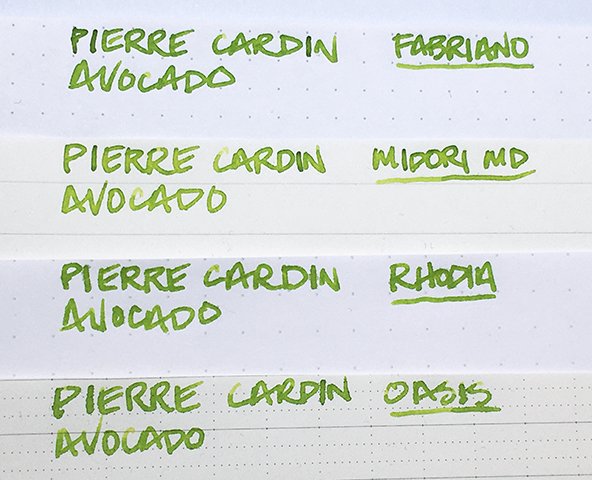 PIERRE CARDIN FABRIANO
AVOCADO
PIERRE CARDIN MIDORI MD
AVOCADO
PIERRE CARDIN RHODIA
AVOCADO
PIERRE CARDIN OASIS
AVOCADO